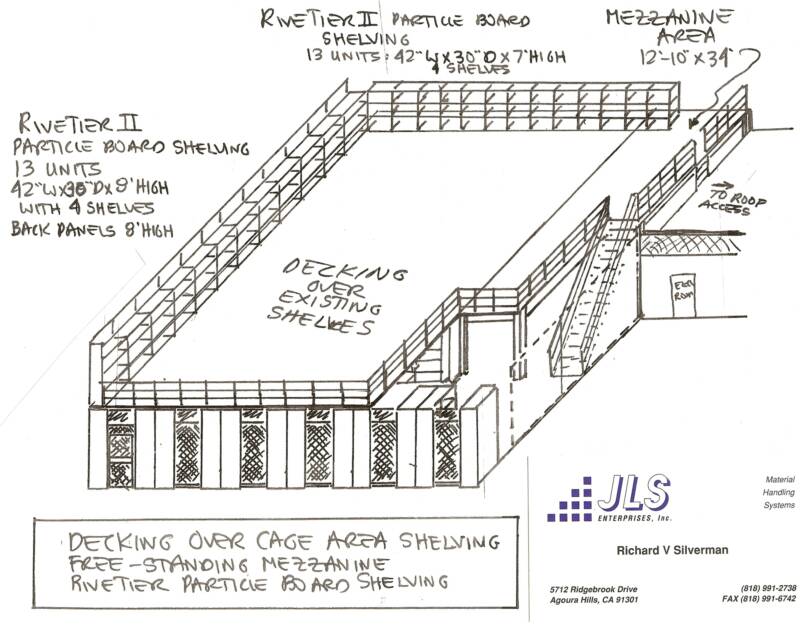 RIVETIER II PARTICLE BOARD
SHELVING
13 UNITS: 42"W X 30"D X 7' HIGH
4 SHELVES
MEZZANINE
AREA
12'-10" X 34'
RIVETIER II
PARTICLE BOARD SHELVING
13 UNITS
42"W X 30"D X 8' HIGH
WITH 4 SHELVES
BACK PANELS 8' HIGH
TO ROOF
ACCESS
DECKING
OVER
EXISTING
SHELVES
JLS
ENTERPRISES, Inc.
Material
Handling
Systems
Richard V Silverman
5712 Ridgebrook Drive
Agoura Hills, CA 91301
(818) 991-2738
FAX (818) 991-6742
DECKING OVER CAGE AREA SHELVING
FREE-STANDING MEZZANINE
RIVETIER PARTICLE BOARD SHELVING